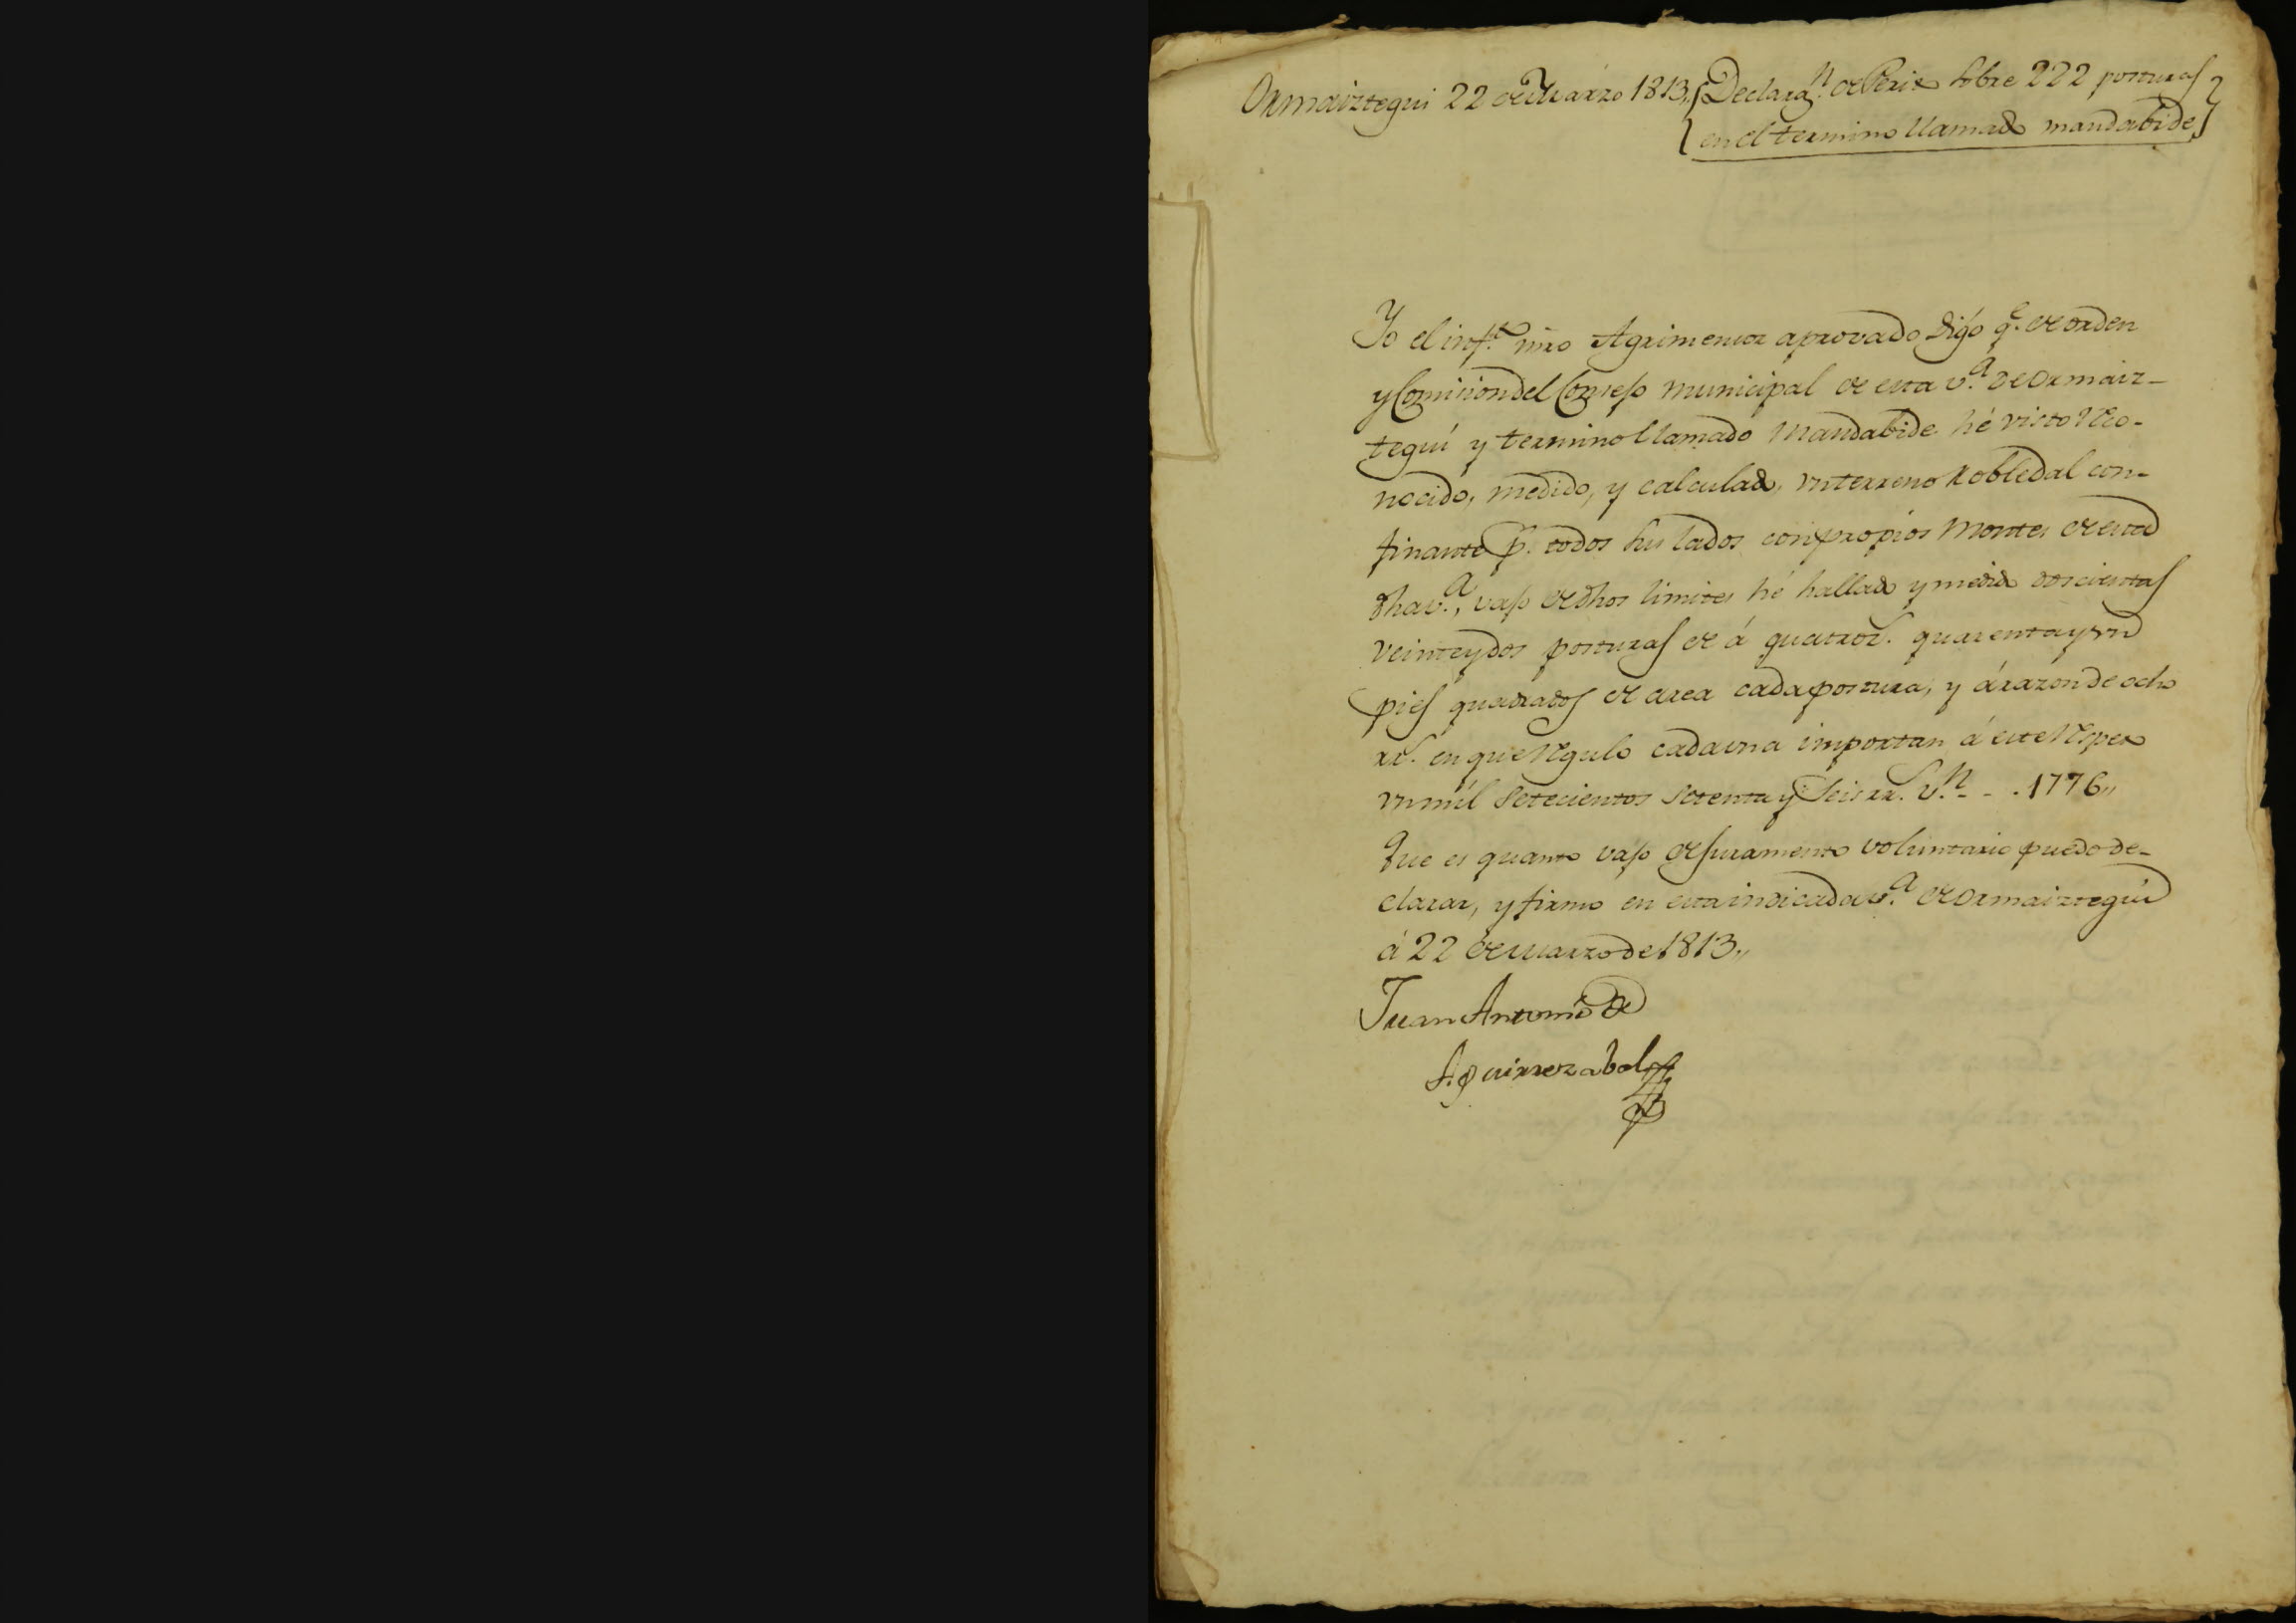 Ormaiztegui 22 de Marzo 1813,, Declaraⁿ. de Perito sobre 222 posturas
en el termino llamado mandabide
Yo el infro. mro Agrimensor aprovado digo qᵉ. de orden
y Comision del Consejo municipal de esta v.ᵃ de Ormaiz-
tegui y termino llamado Mandabide hé visto reco-
nocido, medido, y calculado, vn terreno Robledal con-
finante p.ʳ todos sus lados con propios Montes de esta
dha v.ᵃ, vajo de dhos limites hé hallado y medido doscientas
veinte y dos posturas de á quatroz.ˢ quarenta y vn
pies quadrados de area cada postura, y á razón de ocho
rr.ˢ en que regulo cada vna importan á este respeto
vn mil setecientos setenta y seis rr. v.ⁿ - - . 1776,,
Que es quanto vajo de juramento voluntario puedo de-
clarar, y firmo en esta indicada v.ᵃ de Ormaiztegui
á 22 de Marzo de 1813,,
Juan Antonio de
Aguirrezabal